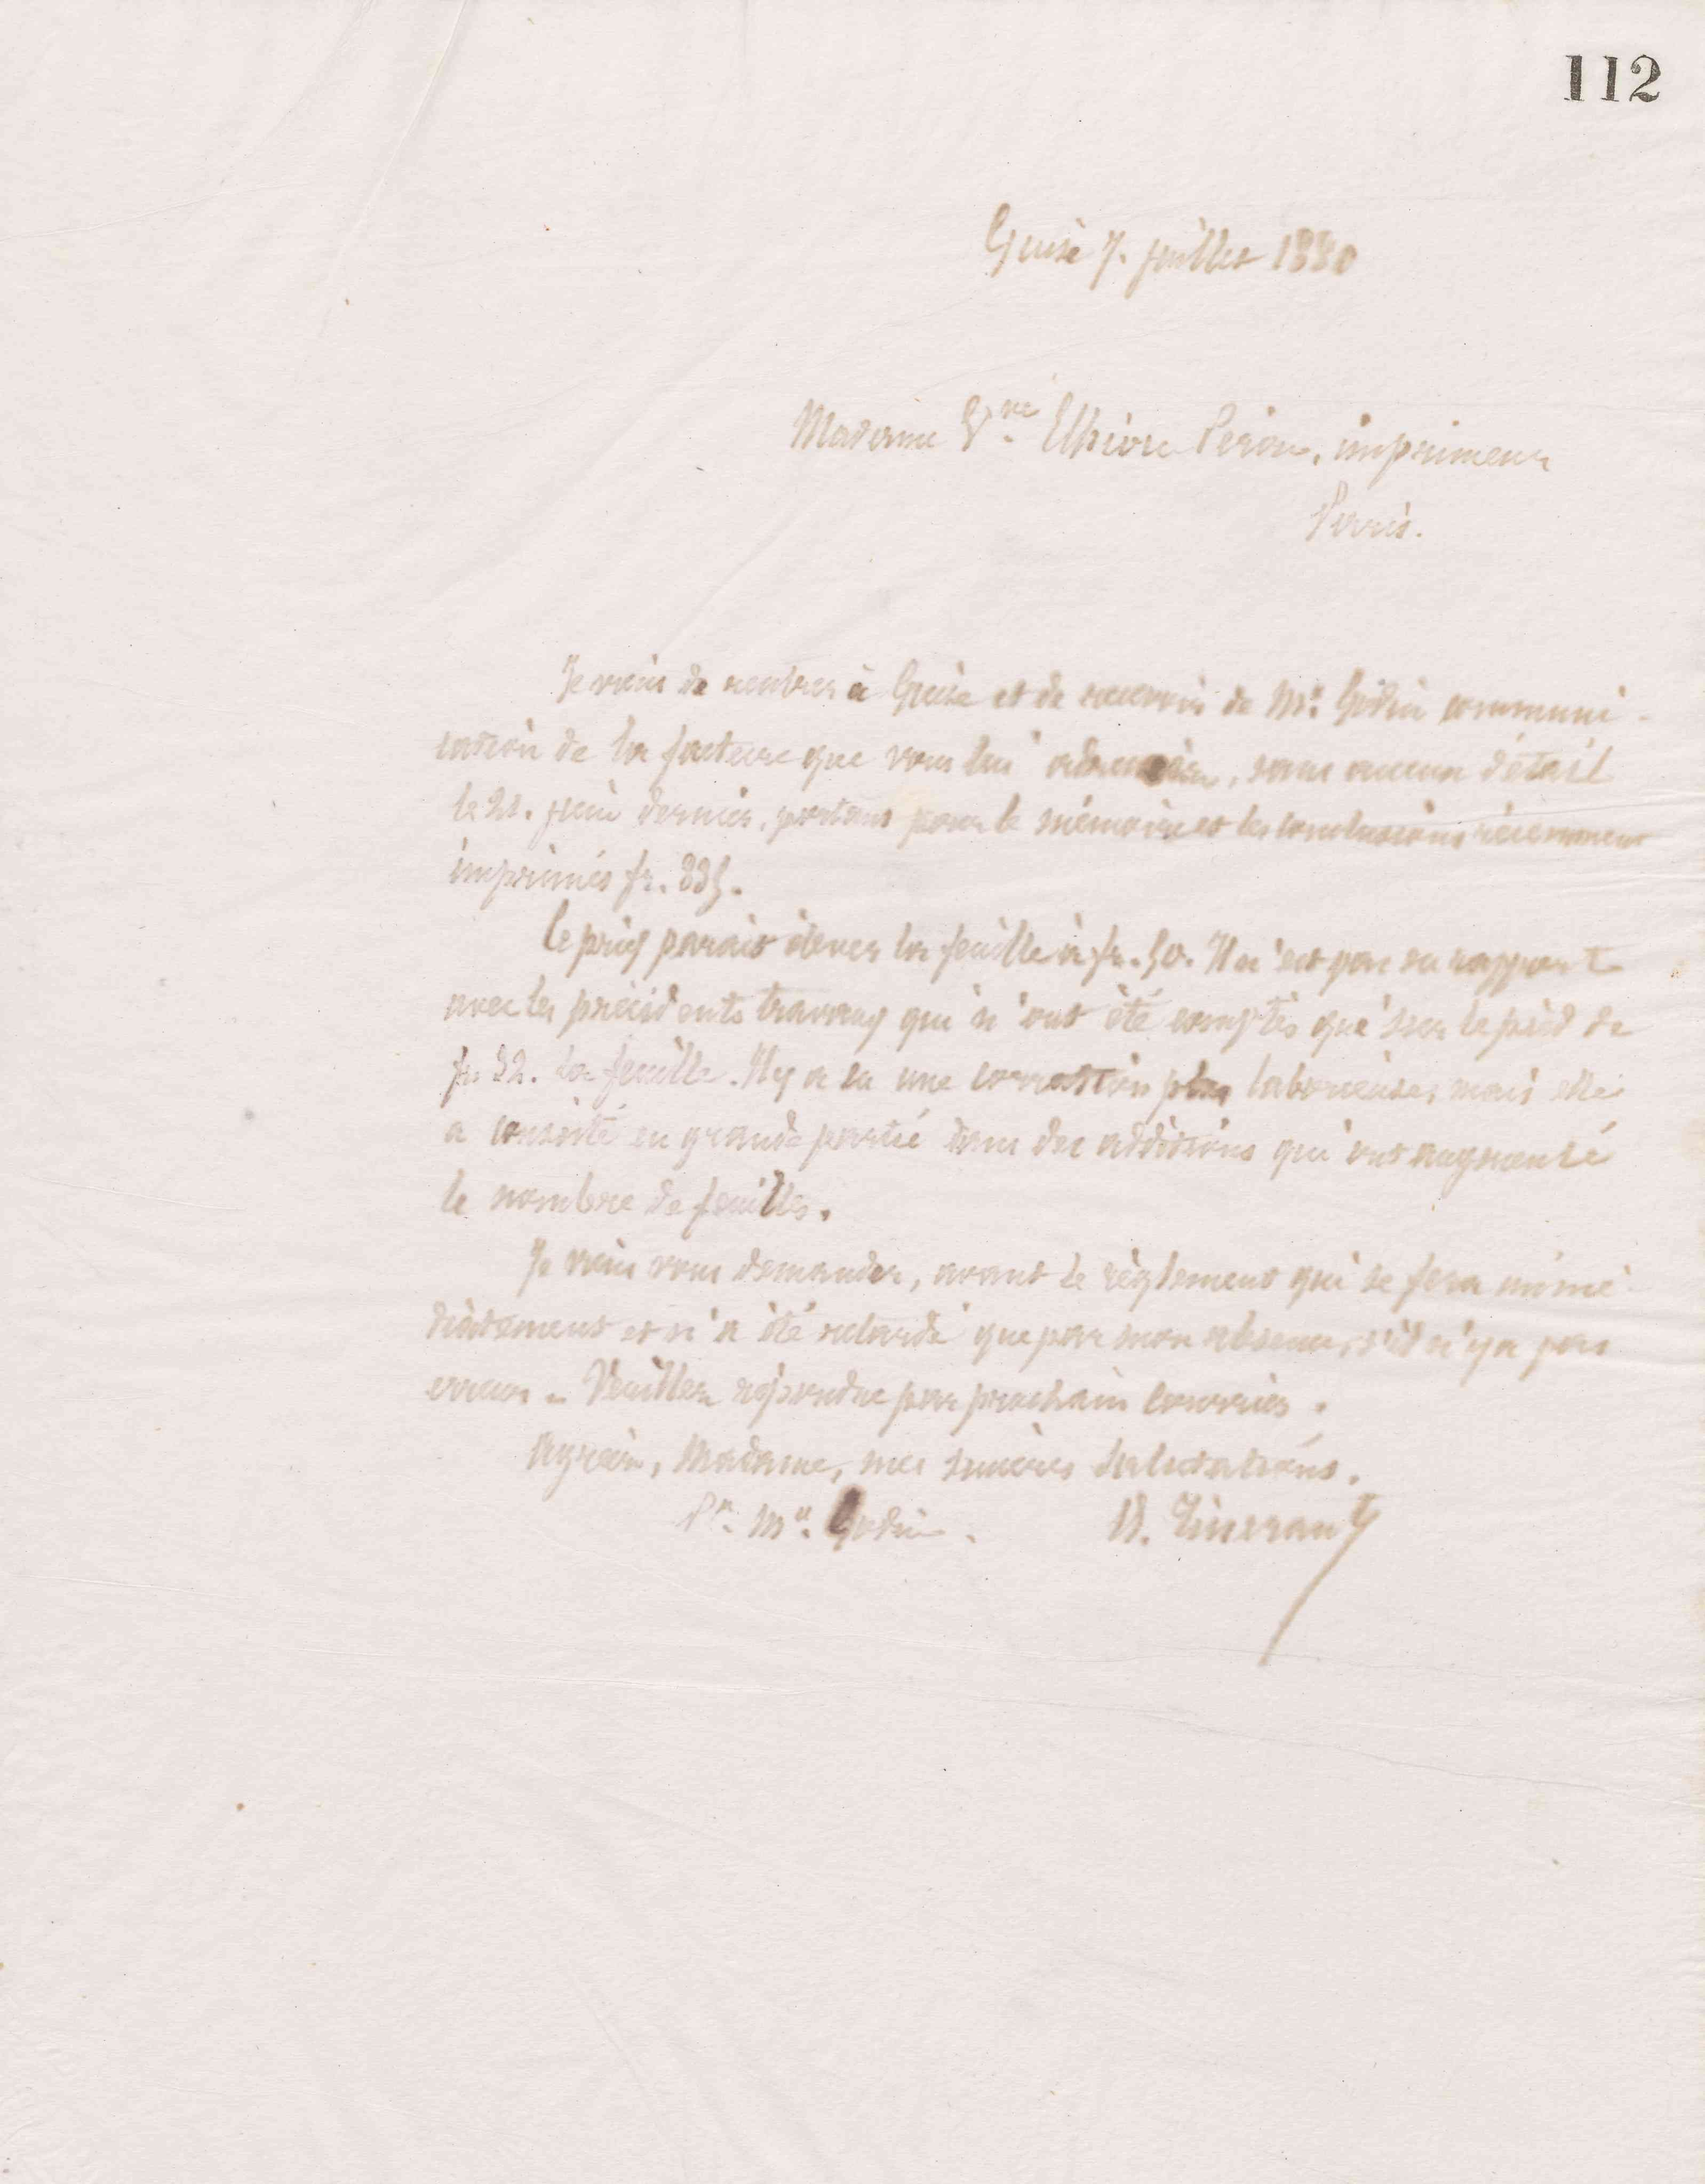 112
Guise 7. juillet 1880
Madame Vve Ethiou Pérou, imprimeur
Paris.
Je viens de rentrer à Guise et de recevoir de Mr. Godin communi-
cation de la facture que vous lui adressiez, sans aucun détail
le 21. juin dernier, portant pour le mémoire et les conclusions récemment
imprimés fr. 835.
Ce prix parait élever la feuille à fr. 50. Il n'est pas en rapport
avec les précédents travaux qui n'ont été comptés que sur le pied de
fr. 32. la feuille. Il y a eu une correction plus laborieuse, mais elle
a consisté en grande partie dans des additions qui ont augmenté
le nombre de feuilles.
Je viens vous demander, avant le règlement qui se fera immé-
diatement et n'a été retardé que par mon absence, s'il n'y a pas
erreur. Veuillez répondre par prochain courrier.
Agréez, Madame, mes sincères salutations.
Pr. Mr. Godin.